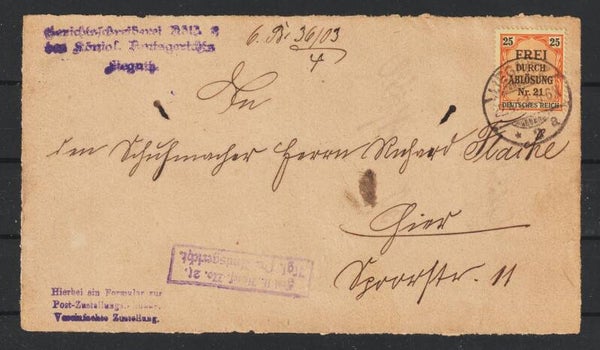 Gerichtsschreiberei Abt. 3
des Königl. Amtsgerichts
Liegnitz.
6. B. 36/03
4
25 25
FREI
DURCH
ABLÖSUNG
Nr. 21
DEUTSCHES REICH
An
den Schuhmacher Herrn Richard
Hier
Spoorstr. 11
No. 21.
Kgl. Amtsgericht.
Hierbei ein Formular zur
Post-Zustellungs
Vereinfachte Zustellung.